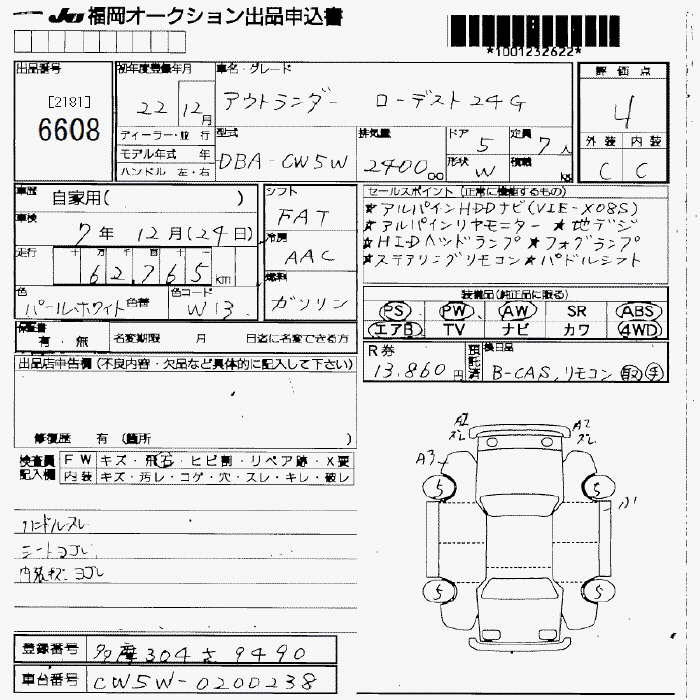 JU 福岡オークション出品申込書
*1001232622*
出品番号
[2181]
6608
初年度登録年月
22 12月
ディーラー・並行
モデル年式 年
ハンドル 左・右
車名・グレード
アウトランダー ローデスト24G
型式
DBA-CW5W
排気量
2400cc
ドア 5
形状 W
定員 7人
積載 kg
評価点
4
外装 内装
C C
車歴 自家用( )
車検 7年 12月(24日)
走行 十 万 千 百 十 一
62,765 km
色 パールホワイト 色替
色コード W13
シフト
FAT
冷房
AAC
燃料
ガソリン
セールスポイント (正常に機能するもの)
★アルパインHDDナビ(VIE-X08S)
★アルパインリヤモニター ★地デジ
★HIDヘッドランプ ★フォグランプ
★ステアリングリモコン ★パドルシフト
装備品(純正品に限る)
PS PW AW SR ABS
エアB TV ナビ カワ 4WD
保証書 有・無
名変期限 月 日迄に名変できる方
R券
13,860円
預託済
後日品
B-CAS, リモコン 取 手
出品店申告欄 (不良内容・欠品など具体的に記入して下さい)
修復歴 有 (箇所 )
検査員記入欄
FW キズ・飛石・ヒビ割・リペア跡・X要
内装 キズ・汚レ・コゲ・穴・スレ・キレ・破レ
ハンドルスレ
シートヨゴレ
内張ヨゴレ
A2
スレ
A2
スレ
A3
5 5
A1
5 5
登録番号 多摩304さ9490
車台番号 CW5W-0200238